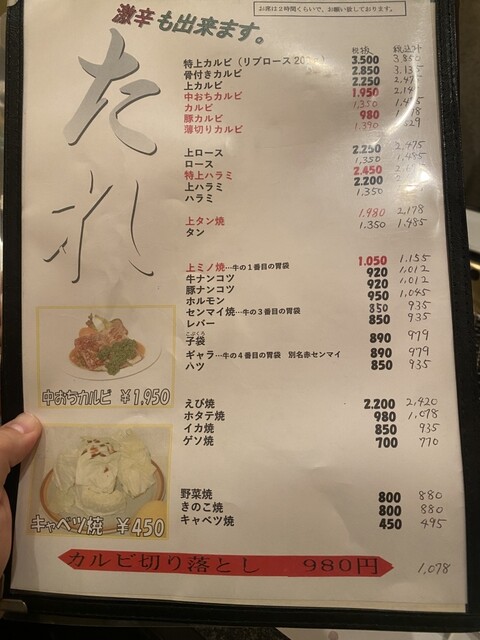 激辛も出来ます。
お席は2時間くらいで、お願い致しております。
たれ
税抜 税込み
特上カルビ（リブロース 3,500
骨付きカルビ 2,850
上カルビ 2,250
中おちカルビ 1,950
カルビ 1,350
豚カルビ 980
薄切りカルビ 1,390
上ロース 2,250 2,475
ロース 1,350 1,485
特上ハラミ 2,450
上ハラミ 2,200
ハラミ 1,350
上タン焼 1,980 2,178
タン 1,350 1,485
上ミノ焼…牛の1番目の胃袋 1,050 1,155
牛ナンコツ 920 1,012
豚ナンコツ 920 1,012
ホルモン 950 1,045
センマイ焼…牛の3番目の胃袋 850 935
レバー 850 935
子袋 890 979
ギャラ…牛の4番目の胃袋 別名赤センマイ 890 979
ハツ 850 935
中おちカルビ ￥1,950
えび焼 2,200 2,420
ホタテ焼 980 1,078
イカ焼 850 935
ゲソ焼 700 770
野菜焼 800 880
きのこ焼 800 880
キャベツ焼 450 495
キャベツ焼 ￥450
カルビ切り落とし 980円 1,078